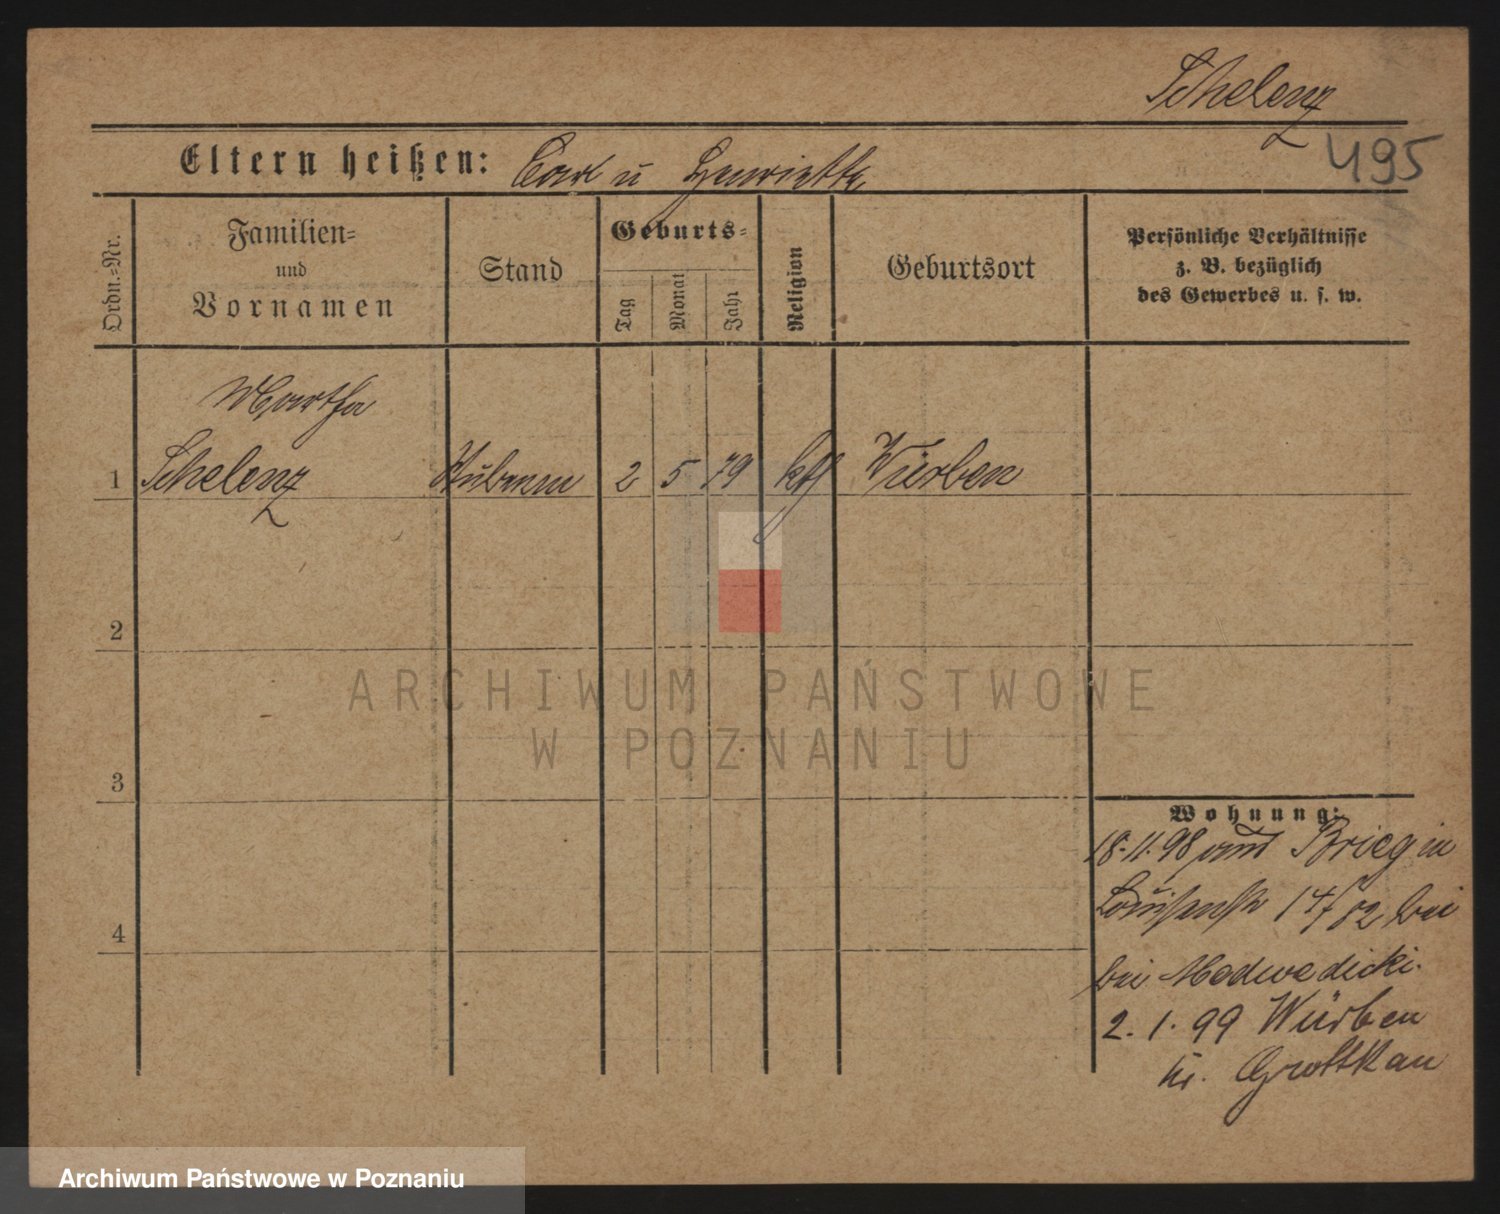 Schelenz
495
Eltern heißen: Carl u Henriette
Ordn.-Nr.
Familien-
und
Vornamen
Stand
Geburts-
Tag
Monat
Jahr
Religion
Geburtsort
Persönliche Verhältnisse
z. B. bezüglich
des Gewerbes u. s. w.
Martha
1 Schelenz 2 5 79 kth Würben
2
3
4
Wohnung:
18.11.98 aus Brieg in
Louisenstr 14/ bei
bei Medwedicki.
2. 1. 99 Würben
kr. Grottkau
ARCHIWUM PAŃSTWOWE
W POZNANIU
Archiwum Państwowe w Poznaniu